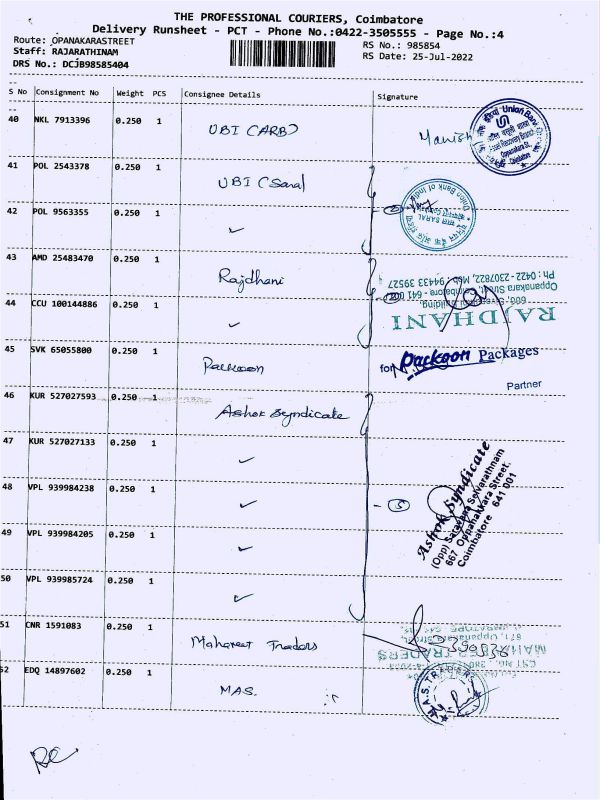 THE PROFESSIONAL COURIERS, Coimbatore
Delivery Runsheet - PCT - Phone No.:0422-3505555 - Page No.:4
Route: OPANAKARASTREET
RS No.: 985854
Staff: RAJARATHINAM
RS Date: 25-Jul-2022
DRS No.: DCJB98585404
S No Consignment No Weight PCS Consignee Details Signature
40 NKL 7913396 0.250 1 UBI (ARB) Manish
41 POL 2543378 0.250 1 UBI (Saral
42 POL 9563355 0.250 1 ✓
43 AMD 25483470 0.250 1 Rajdhani
Ph : 0422 - 2307822, Mob : 94433 39527
44 CCU 100144886 0.250 1 ✓
RAJDHANI
45 SVK 65055800 0.250 1 Packoon for Packoon Packages
Partner
46 KUR 527027593 0.250 1 Ashok Syndicate
47 KUR 527027133 0.250 1 ✓
48 VPL 939984238 0.250 1 ✓ - 5
Ashok Syndicate
(Opp) Saravana Selvarathnam
867 Oppanakkara Street,
Coimbatore 641 001
49 VPL 939984205 0.250 1 ✓
50 VPL 939985724 0.250 1 ✓
51 CNR 1591083 0.250 1 Mahaveer Traders
52 EDQ 14897602 0.250 1 MAS.
M.A.S. TRADERS